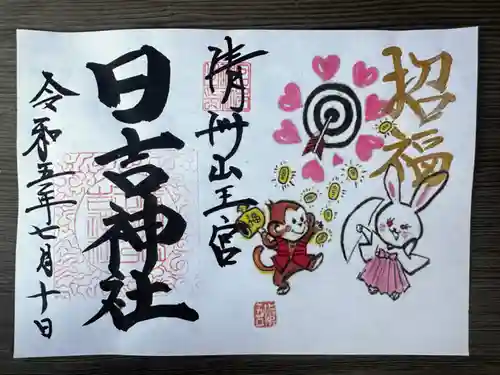 招福
清洲山王宮
日吉神社
令和五年七月十日
福